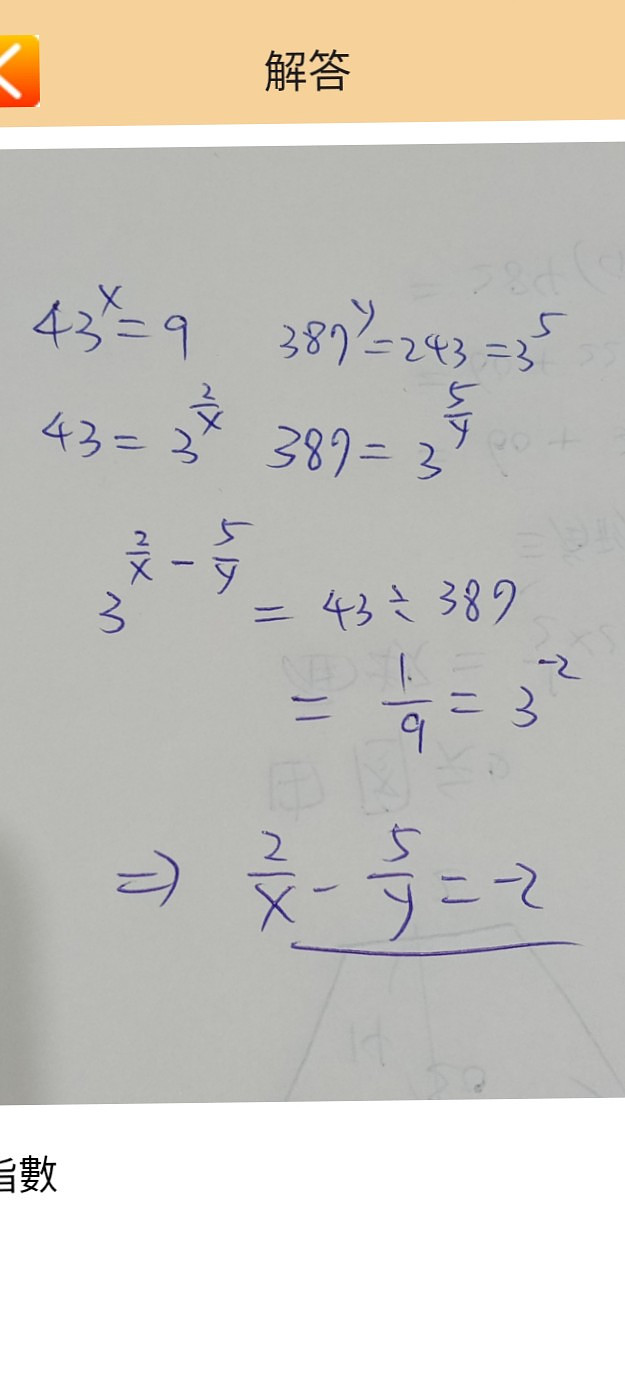 解答
43^x = 9 389^y = 243 = 3^5
43 = 3^(2/x) 389 = 3^(5/y)
3^(2/x - 5/y) = 43 ÷ 389
= 1/9 = 3^-2
⇒ 2/x - 5/y = -2
指數